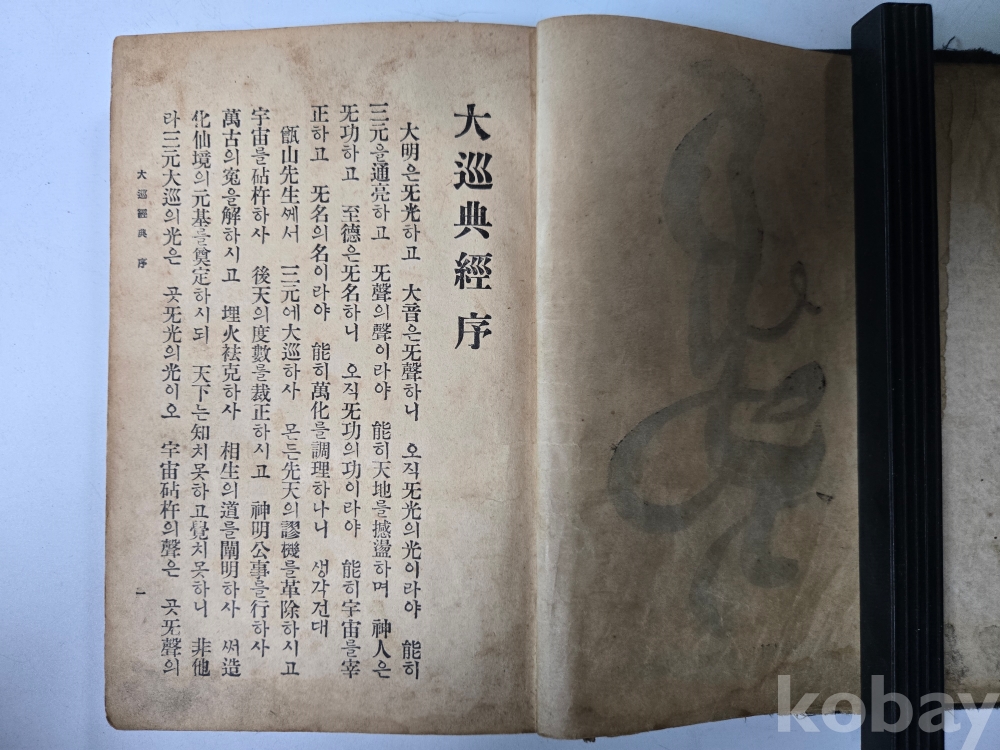 大巡典經 序
大明은旡光하고 大音은旡聲하니 오직旡光의光이라야 能히
三元을通亮하고 旡聲의聲이라야 能히天地를撼盪하며 神人은
旡功하고 至德은旡名하니 오직旡功의功이라야 能히宇宙를宰
正하고 旡名의名이라야 能히萬化를調理하나니 생각건대
甑山先生께서 三元에大巡하사 모든先天의謬機를革除하시고
宇宙를砧杵하사 後天의度數를裁正하시고 神明公事를行하사
萬古의寃을解하시고 埋火祛克하사 相生의道를闡明하사 써造
化仙境의元基를奠定하시되 天下는知치못하고覺치못하니 非他
라三元大巡의光은 곳旡光의光이오 宇宙砧杵의聲은 곳旡聲의
大巡經典 序
一
kobay